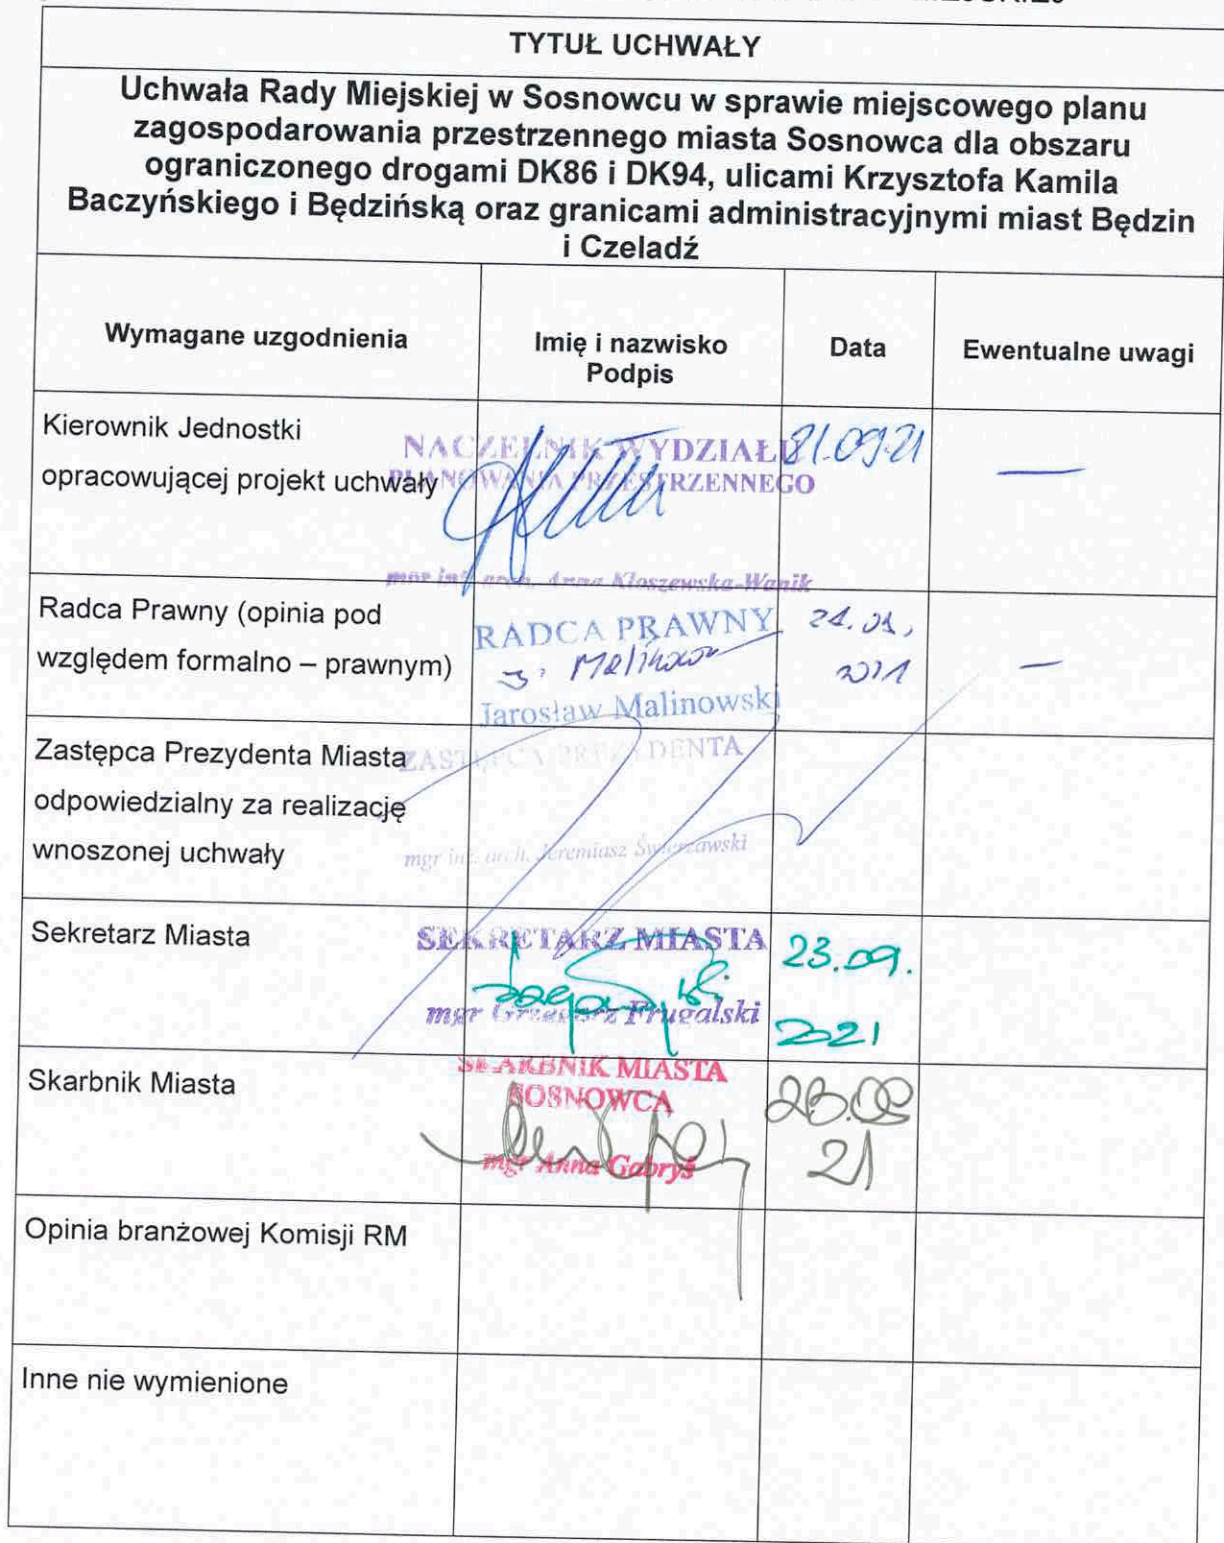 TYTUŁ UCHWAŁY
Uchwała Rady Miejskiej w Sosnowcu w sprawie miejscowego planu
zagospodarowania przestrzennego miasta Sosnowca dla obszaru
ograniczonego drogami DK86 i DK94, ulicami Krzysztofa Kamila
Baczyńskiego i Będzińską oraz granicami administracyjnymi miast Będzin
i Czeladź
Wymagane uzgodnienia
Imię i nazwisko
Podpis
Data
Ewentualne uwagi
Kierownik Jednostki
opracowującej projekt uchwały
NACZELNIK WYDZIAŁU
PLANOWANIA PRZESTRZENNEGO
mgr inż. arch. Anna Kloszewska-Wanik
21.09.21
—
Radca Prawny (opinia pod
względem formalno – prawnym)
RADCA PRAWNY
J. Malinow
Jarosław Malinowski
2021
—
Zastępca Prezydenta Miasta
odpowiedzialny za realizację
wnoszonej uchwały
ZASTĘPCA PREZYDENTA
mgr inż. arch. Jeremiasz Świerzawski
Sekretarz Miasta
SEKRETARZ MIASTA
mgr Grzegorz Frugalski
23.09.
2021
Skarbnik Miasta
SKARBNIK MIASTA
SOSNOWCA
mgr Anna Gabryś
23.09
21
Opinia branżowej Komisji RM
Inne nie wymienione